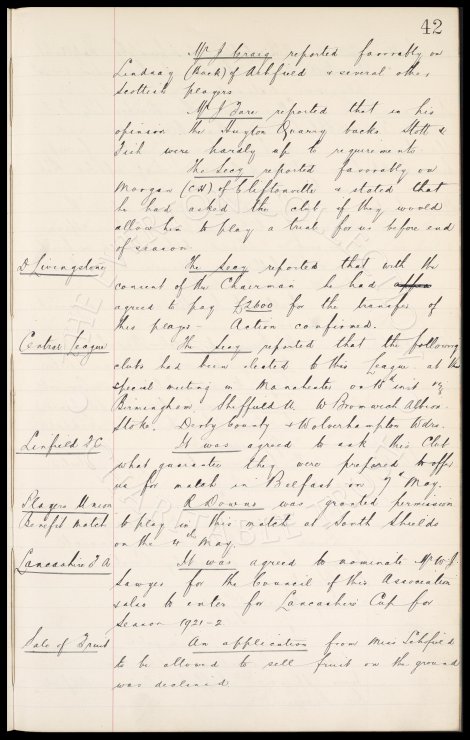 42
Mr J Craig reported favorably on
Lindsay (Back) of Ashfield & several other
Scottish players
Mr J Fare reported that in his
opinion the Huyton Quarry backs Stott &
Fish were hardly up to requirements
The Secy reported favorably on
Morgan (CH) of Cliftonville & stated that
he had asked the club if they would
allow him to play a trial for us before end
of season
D. Livingstone The Secy reported that with the
concent of the Chairman he had
agreed to pay £2600 for the transfer of
this player - Action confirmed.
Central League The Secy reported that the following
clubs had been elected to this League at the
special meeting in Manchester on 10th inst viz
Birmingham, Sheffield U. W Bromwich Albion.
Stoke. Derby County & Wolverhampton Wdrs.
Linfield F.C It was agreed to ask this Club
what guarantee they were prepared to offer
us for match in Belfast on May.
Players Union R Downs was granted permission
Benefit match to play in this match at South Shields
on the 4th May.
Lancashire F.A It was agreed to nominate Mr W.J.
Sawyer for the Council of this Association
also to enter for Lancashire Cup for
Season 1921-2
Sale of Fruit An application from Miss Schofield
to be allowed to sell fruit on the ground
was declined.